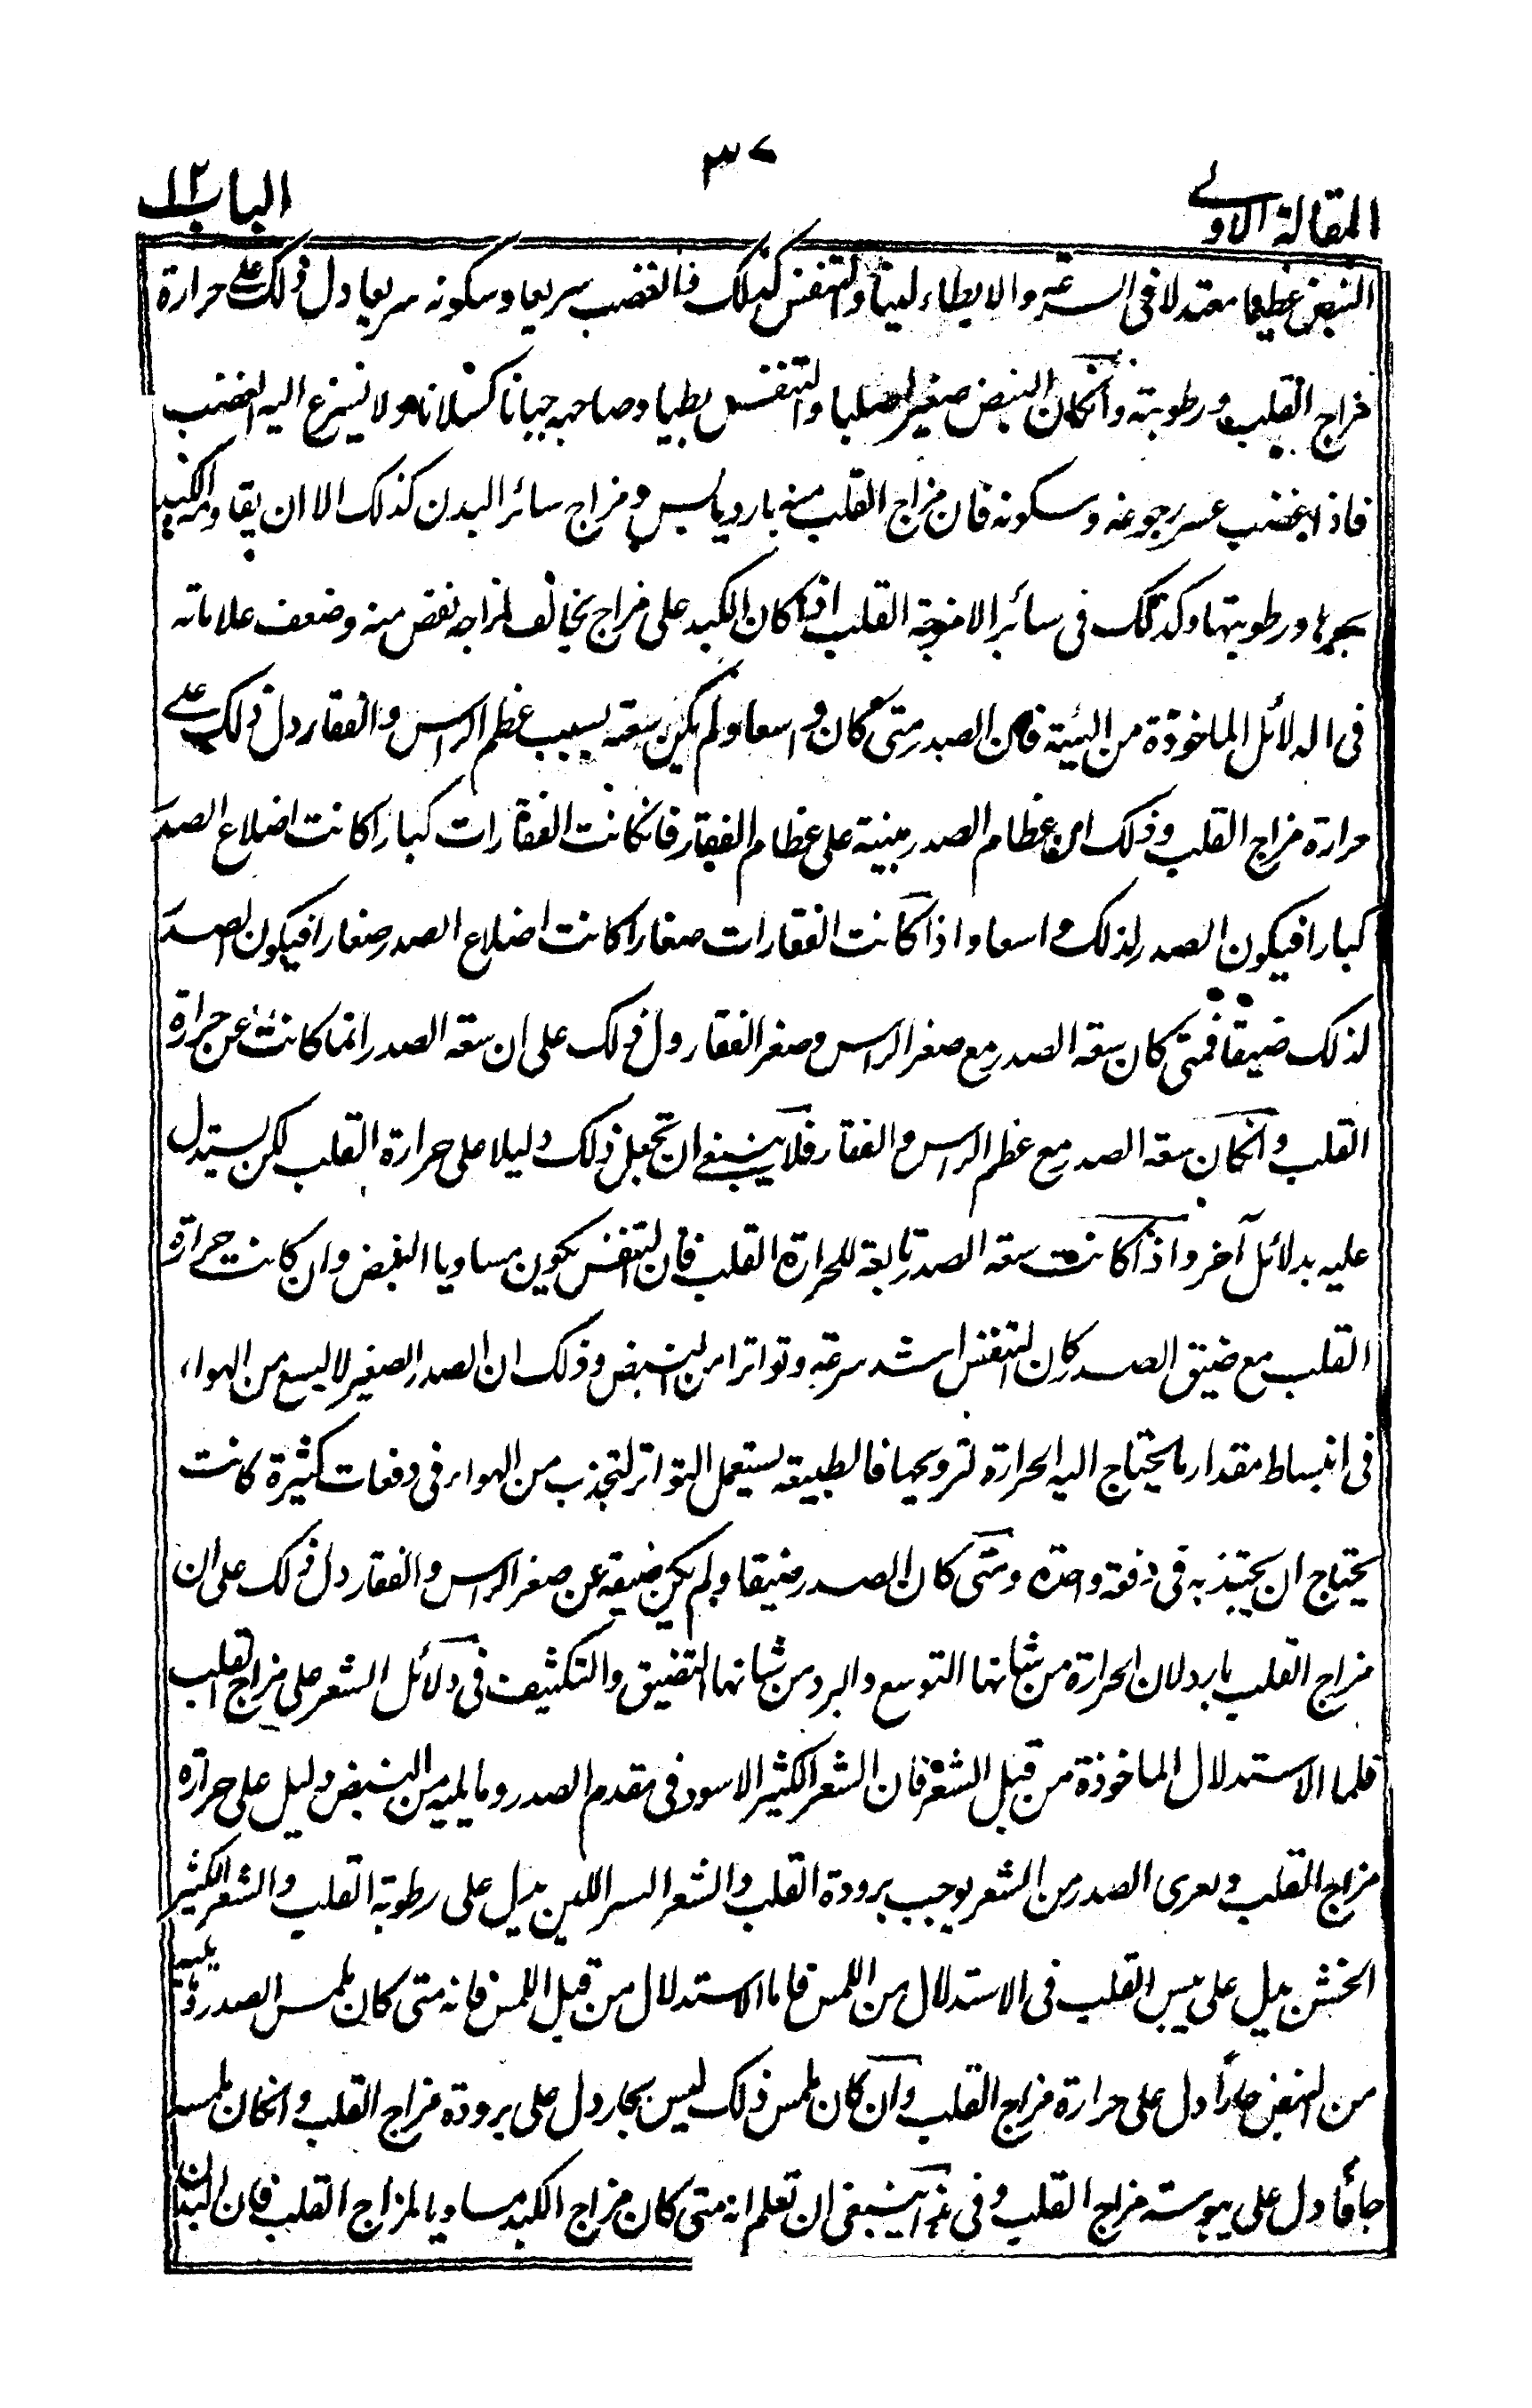 المقالة الاولے
٣٧
الباب ١٢
النبض عظیما معتدلا فی السرعة والابطاء لینا والتنفس کذلک فالغضب سریعا وسکونه سریعا دل ذلک علے حرارة
مزاج القلب ورطوبته وانکان النبض صغیرا صلبا والتنفس بطیا وصاحبه جبانا کسلانا ولا یسرع الیه الغضب
فاذا غضب عسر رجوعه وسکونه فان مزاج القلب منه بارد یابس ومزاج سائر البدن کذلک الا ان یقاومه الکبد
بحرها ورطوبتها وکذلک فی سائر الامزجة القلب اذا کان الکبد علی مزاج یخالف لمزاجه نقض منه وضعف علاماته
فی الدلائل الماخوذة من الهیئة فان الصدر متی کان واسعا ولم یکن سعته بسبب عظم الراس والفقار دل ذلک علے
حرارة مزاج القلب وذلک ان عظام الصدر مبنیة علی عظام الفقار فانکانت الفقارات کبارا کانت اضلاع الصدر
کبارا فیکون الصدر لذلک واسعا واذا کانت الفقارات صغارا کانت اضلاع الصدر صغارا فیکون الصدر
لذلک ضیقا فمتی کان سعة الصدر مع صغر الراس وصغر الفقار دل ذلک علی ان سعة الصدر انما کانت عن حرارة
القلب وانکان سعة الصدر مع عظم الراس والفقار فلا ینبغے ان تجعل ذلک دلیلا علی حرارة القلب لکن یستدل
علیه بدلائل آخر واذا کانت سعة الصدر تابعة للحرارة القلب فان التنفس یکون مساویا النبض وان کانت حرارة
القلب مع ضیق الصدر کان التنفس اشد سرعة وتواترا من النبض وذلک ان الصدر الصغیر لا یسع من الهواء
فی انبساط مقدار ما یحتاج الیه الحرارة لترویحها فالطبیعة یستعمل التواتر لتجذب من الهواء فی دفعات کثیرة کانت
یحتاج ان یجتذبه فی دفعة واحدة ومتی کان الصدر ضیقا ولم یکن ضیقه عن صغر الراس والفقار دل ذلک علی ان
مزاج القلب بارد لان الحرارة من شانها التوسع والبرد من شانها التضیق والتکثیف فی دلائل الشعر علی مزاج القلب
فاما الاستدلال الماخوذة من قبل الشعر فان الشعر الکثیر الاسود فی مقدم الصدر وما یلیه من النبض دلیل علی حرارة
مزاج القلب وبعری الصدر من الشعر یوجب برودة القلب والشعر السر اللین یدل علی رطوبة القلب والشعر الکثیر
الخشن یدل علی یبس القلب فی الاستدلال من اللمس فاما الاستدلال من قبل اللمس فانه متی کان ملمس الصدر وما یلیه
من النبض حارا دل علی حرارة مزاج القلب وان کان ملمس ذلک لیس بحار دل علی برودة مزاج القلب وانکان ملمسه
جافا دل علی یبوسته مزاج القلب وفی هذا ینبغی ان تعلم انه متی کان مزاج الکبد مساویا لمزاج القلب فان البدن